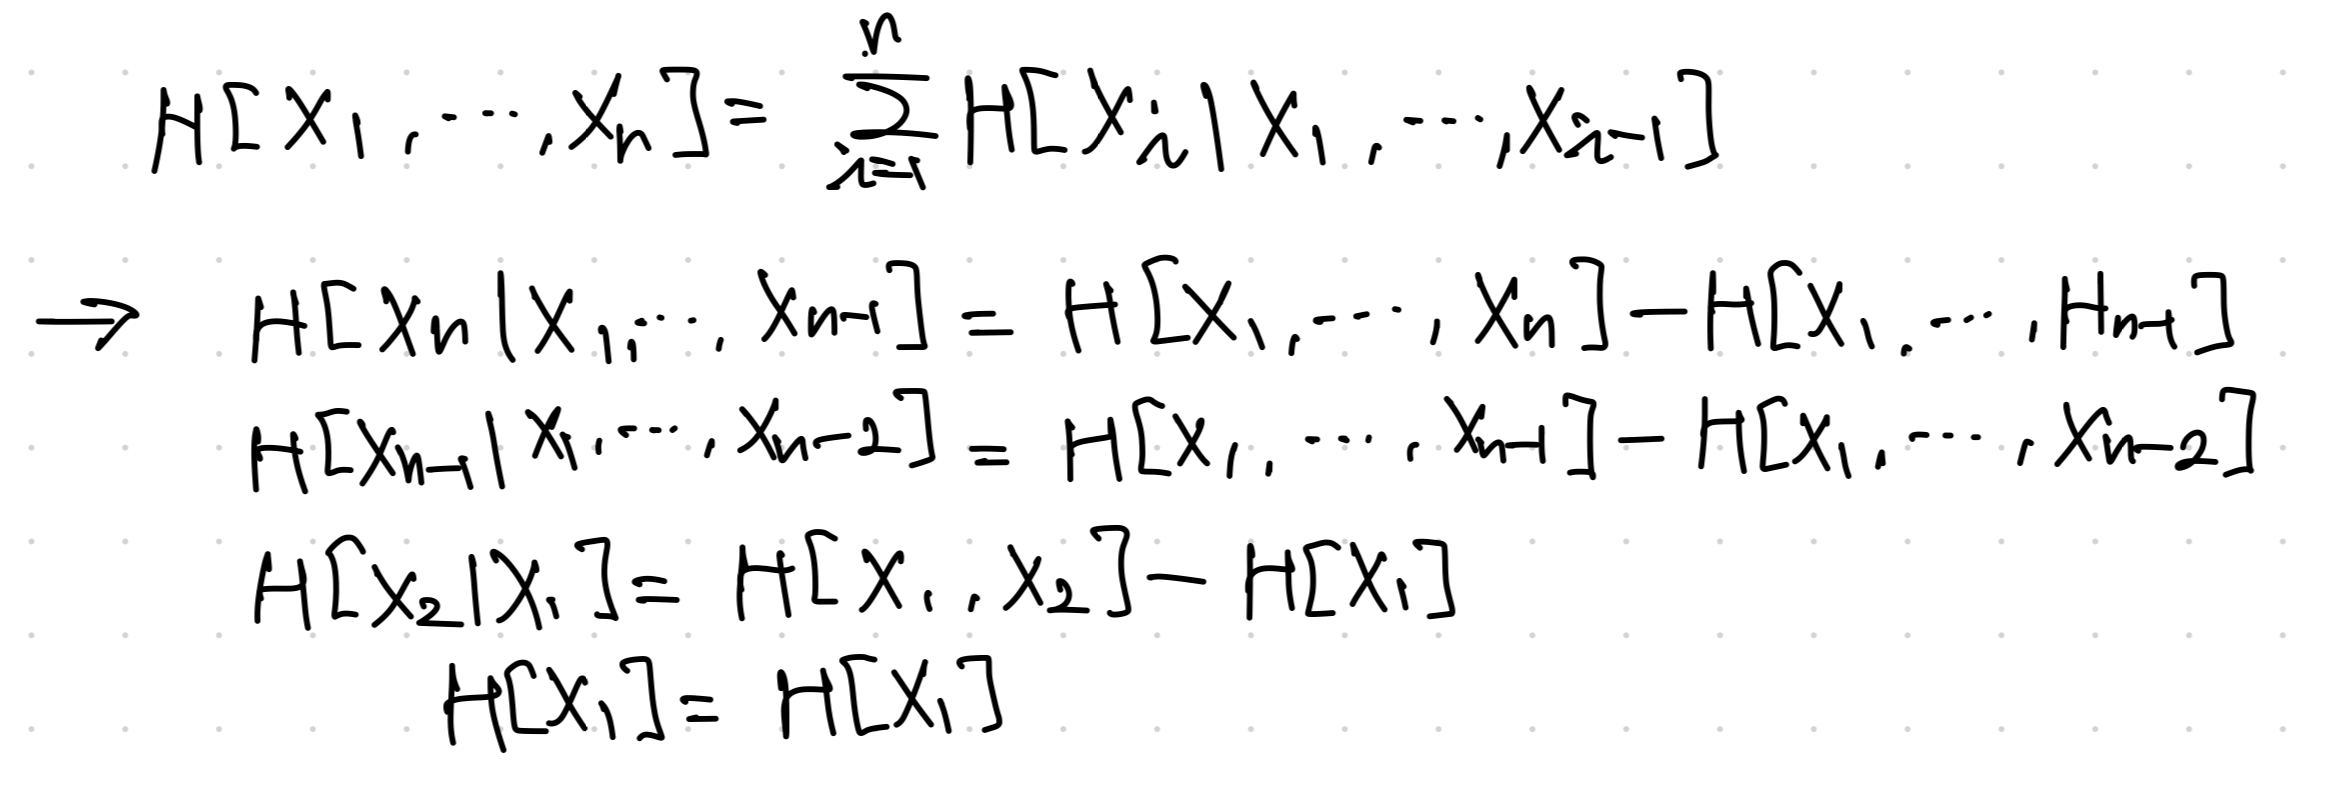 H[X₁, ..., Xₙ] = ∑ⁿᵢ₌₁ H[Xᵢ | X₁, ..., Xᵢ₋₁]
→ H[Xₙ | X₁, ..., Xₙ₋₁] = H[X₁, ..., Xₙ] − H[X₁, ..., Hₙ₋₁]
H[Xₙ₋₁ | X₁, ..., Xₙ₋₂] = H[X₁, ..., Xₙ₋₁] − H[X₁, ..., Xₙ₋₂]
H[X₂ | X₁] = H[X₁, X₂] − H[X₁]
H[X₁] = H[X₁]